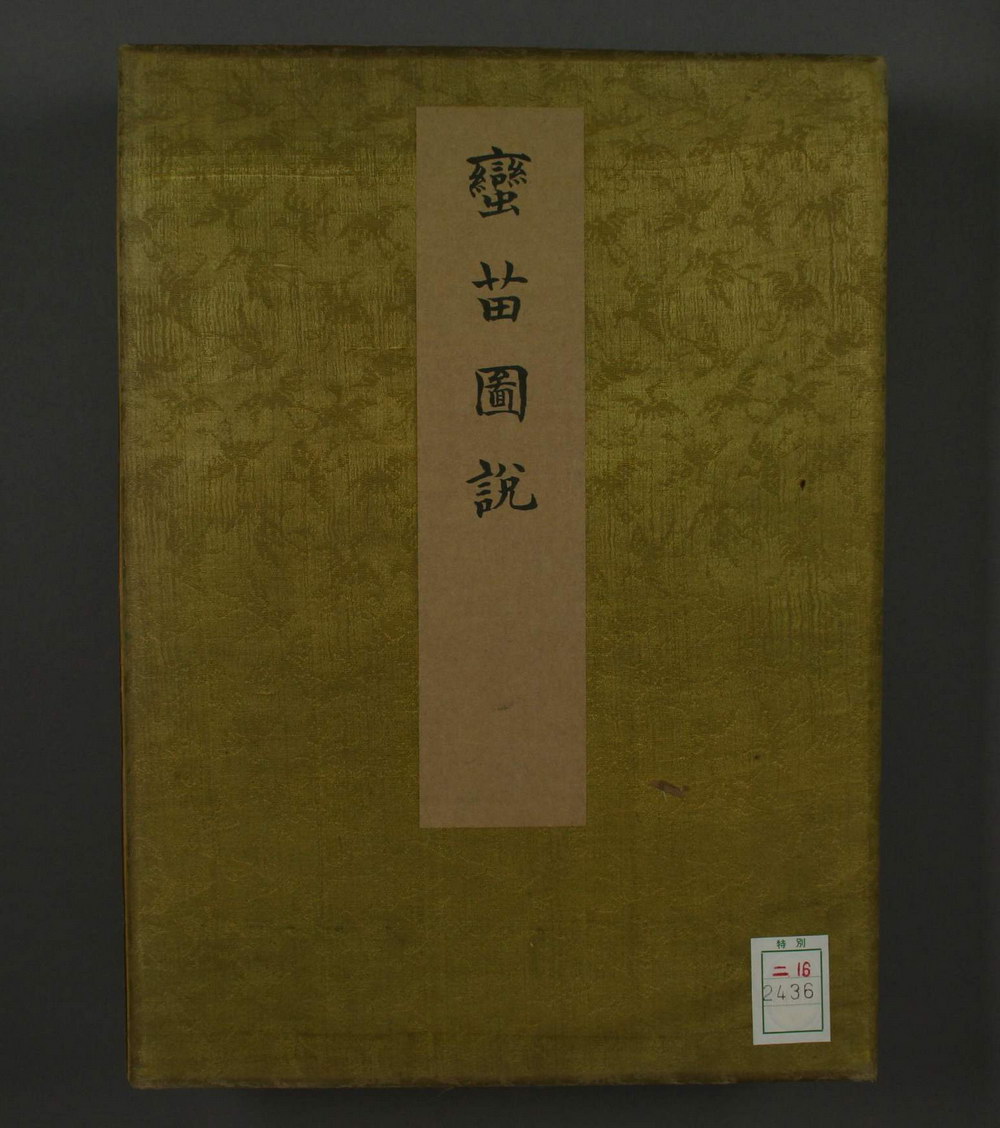 蠻苗圖說
特別
二 16
2436